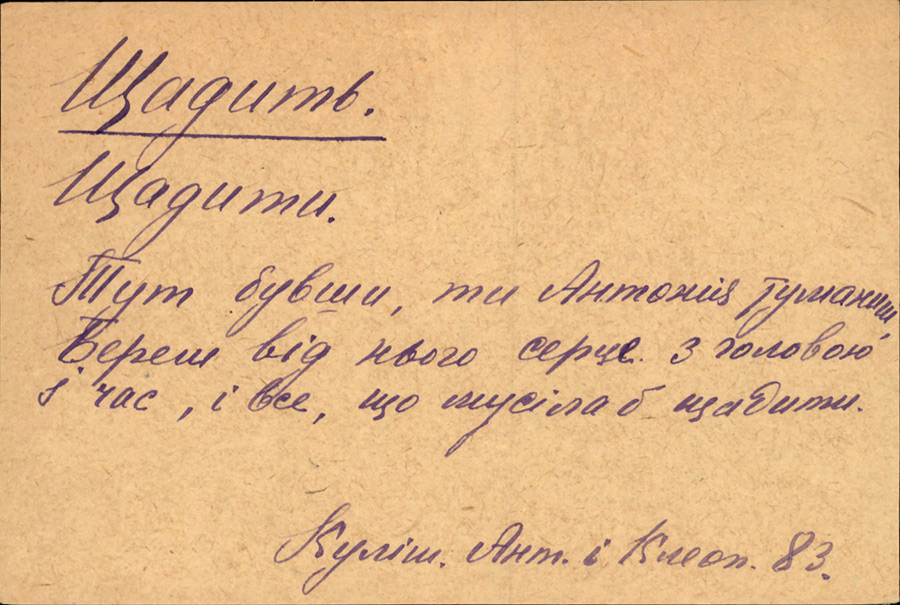 Щадить.
Щадити.
Тут бувши, ти Антонія туманиш,
Береш від нього серце з головою
І час, і все, що мусіла б щадити.
Куліш. Ант. і Клеоп. 83.